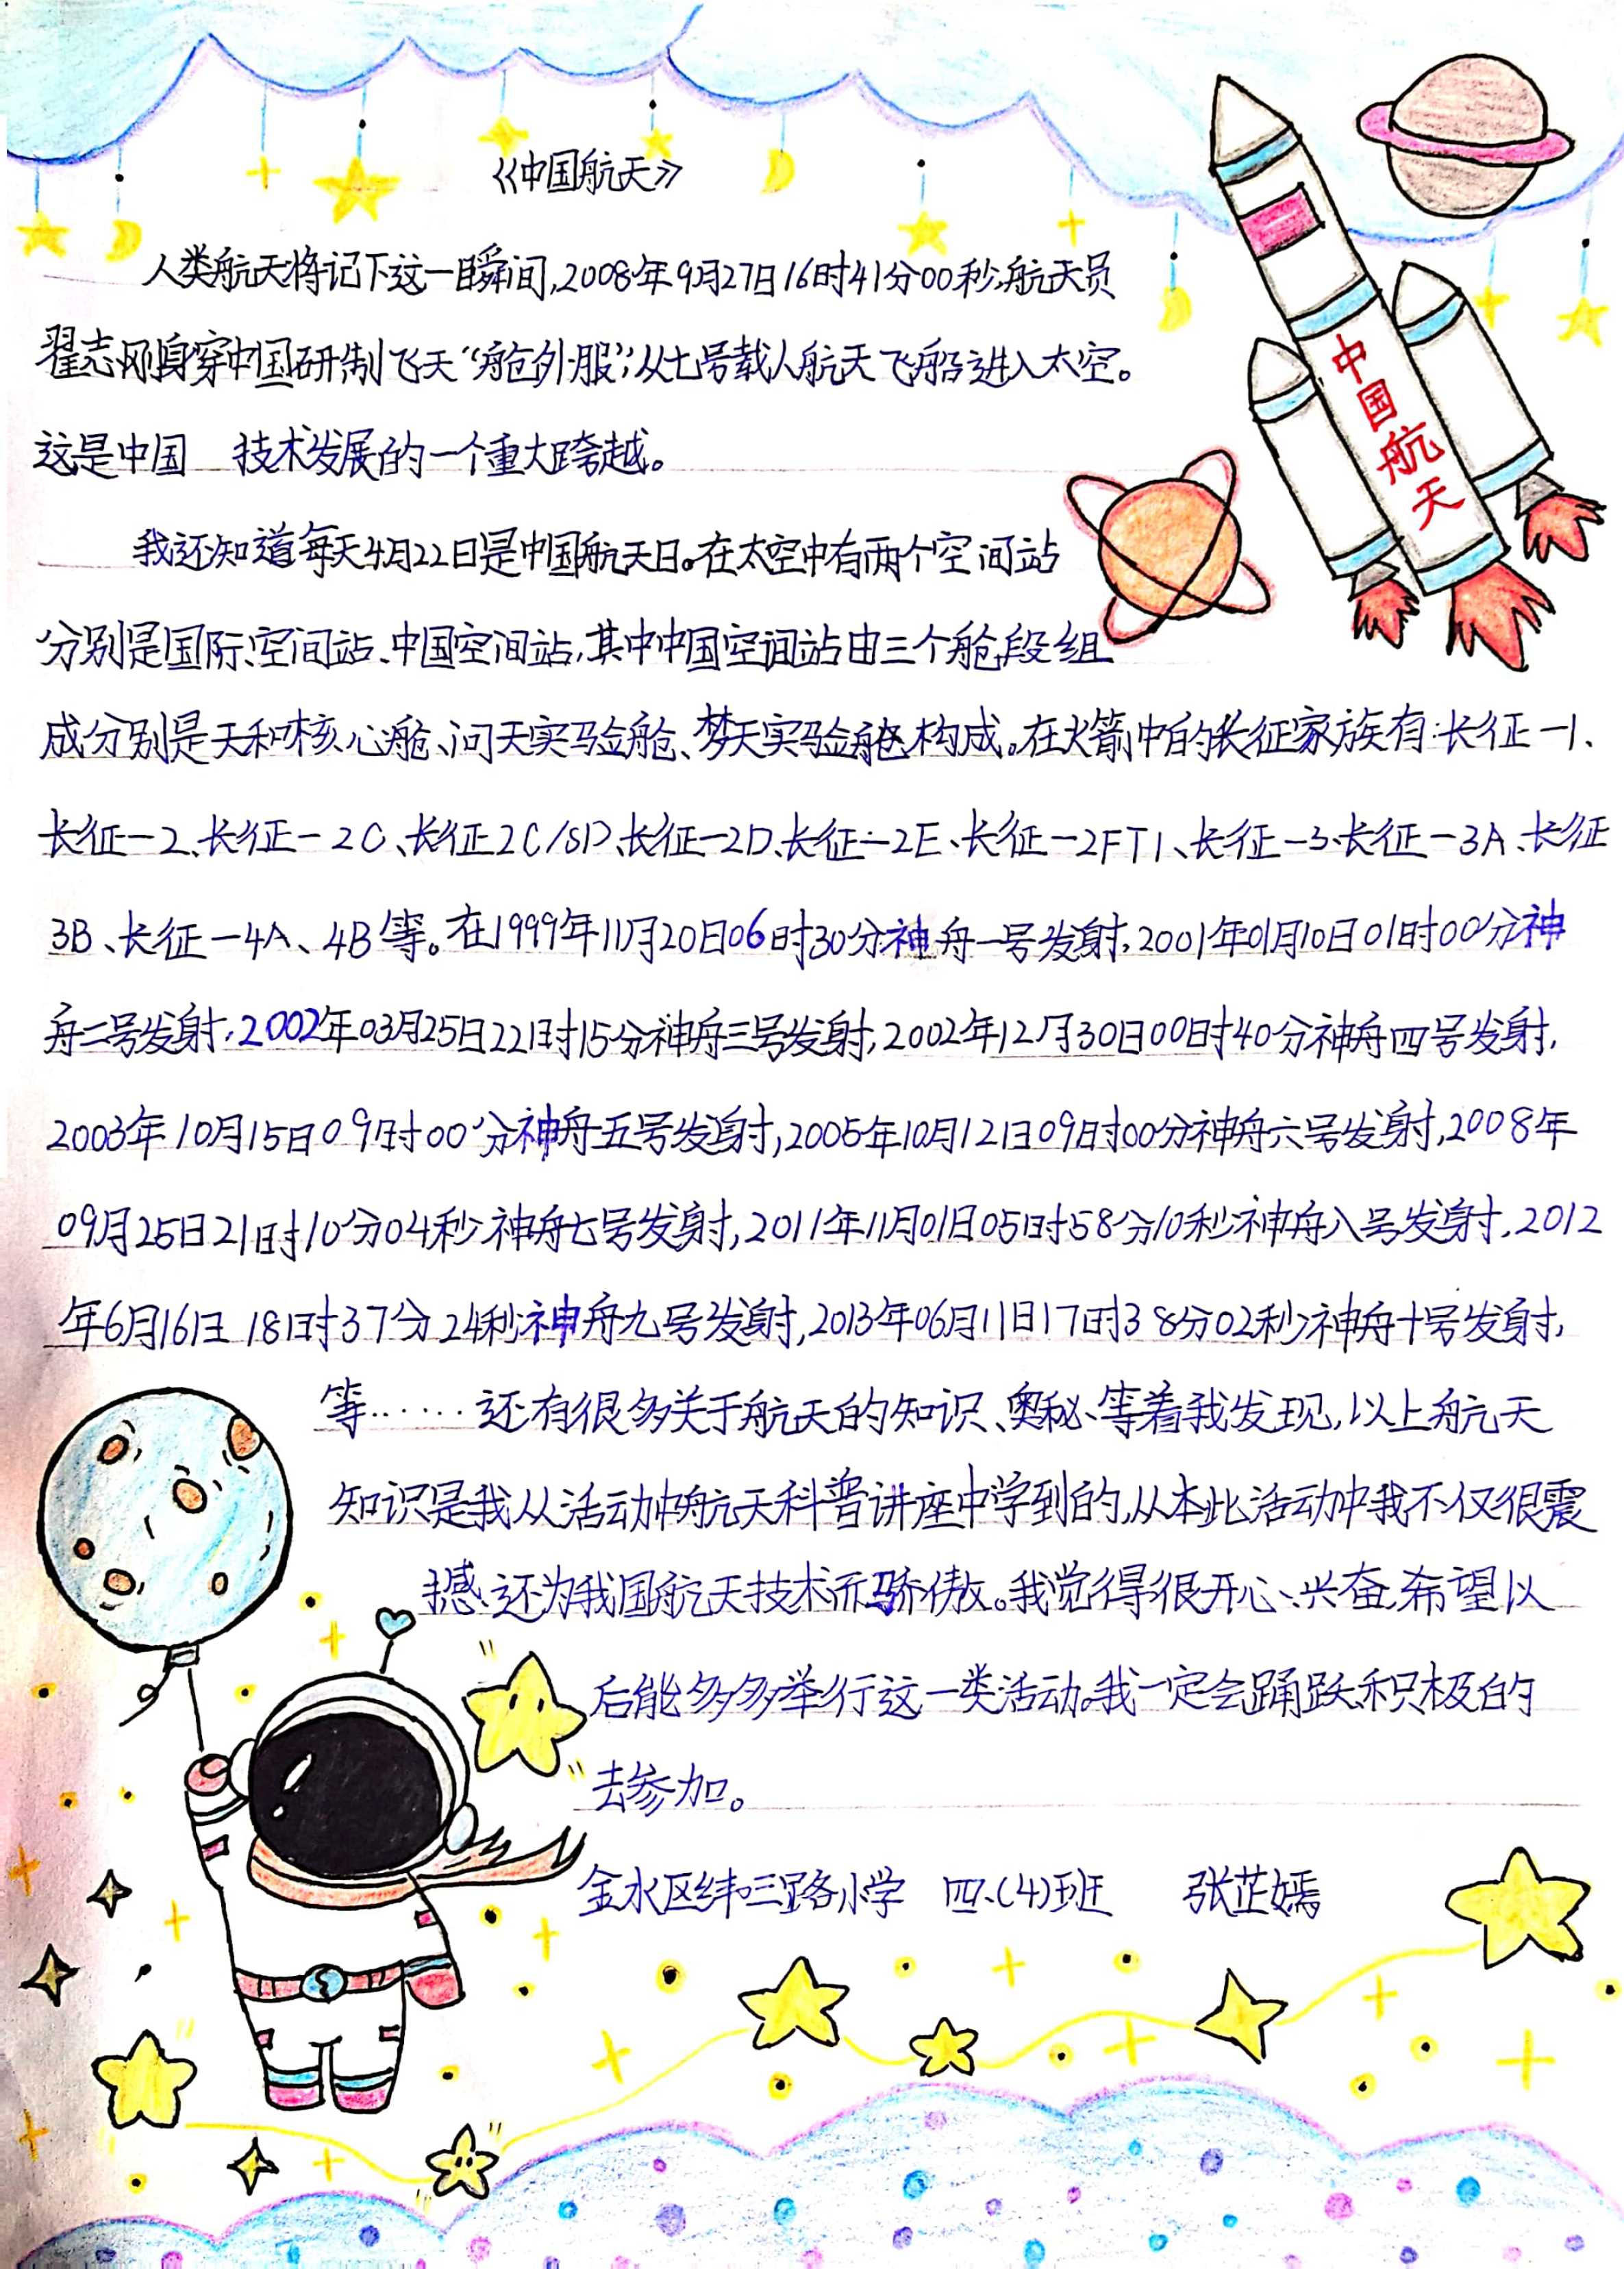 《中国航天》
人类航天将记下这一瞬间,2008年9月27日16时41分00秒,航天员
翟志刚身穿中国研制飞天“舱外服”,从七号载人航天飞船进入太空。
这是中国 技术发展的一个重大跨越。
我还知道每天4月22日是中国航天日。在太空中有两个空间站
分别是国际空间站、中国空间站,其中中国空间站由三个舱段组
成分别是天和核心舱、问天实验舱、梦天实验舱构成。在火箭中的长征家族有:长征-1、
长征-2、长征-2C、长征2C/SD、长征-2D、长征-2E、长征-2FT1、长征-3、长征-3A、长征
3B、长征-4A、4B等。在1999年11月20日06时30分神舟一号发射,2001年01月10日01时00分神
舟二号发射,2002年03月25日22时15分神舟三号发射,2002年12月30日00时40分神舟四号发射,
2003年10月15日09时00分神舟五号发射,2005年10月12日09时00分神舟六号发射,2008年
09月25日21时10分04秒神舟七号发射,2011年11月01日05时58分10秒神舟八号发射,2012
年6月16日18时37分24秒神舟九号发射,2013年06月11日17时38分02秒神舟十号发射,
等……还有很多关于航天的知识、奥秘、等着我发现,以上航天
知识是我从活动中航天科普讲座中学到的,从本此活动中我不仅很震
撼、还为我国航天技术而骄傲。我觉得很开心、兴奋,希望以
后能多多举行这一类活动。我一定会踊跃积极的
去参加。
金水区纬三路小学 四、(4)班 张芷嫣
中国航天